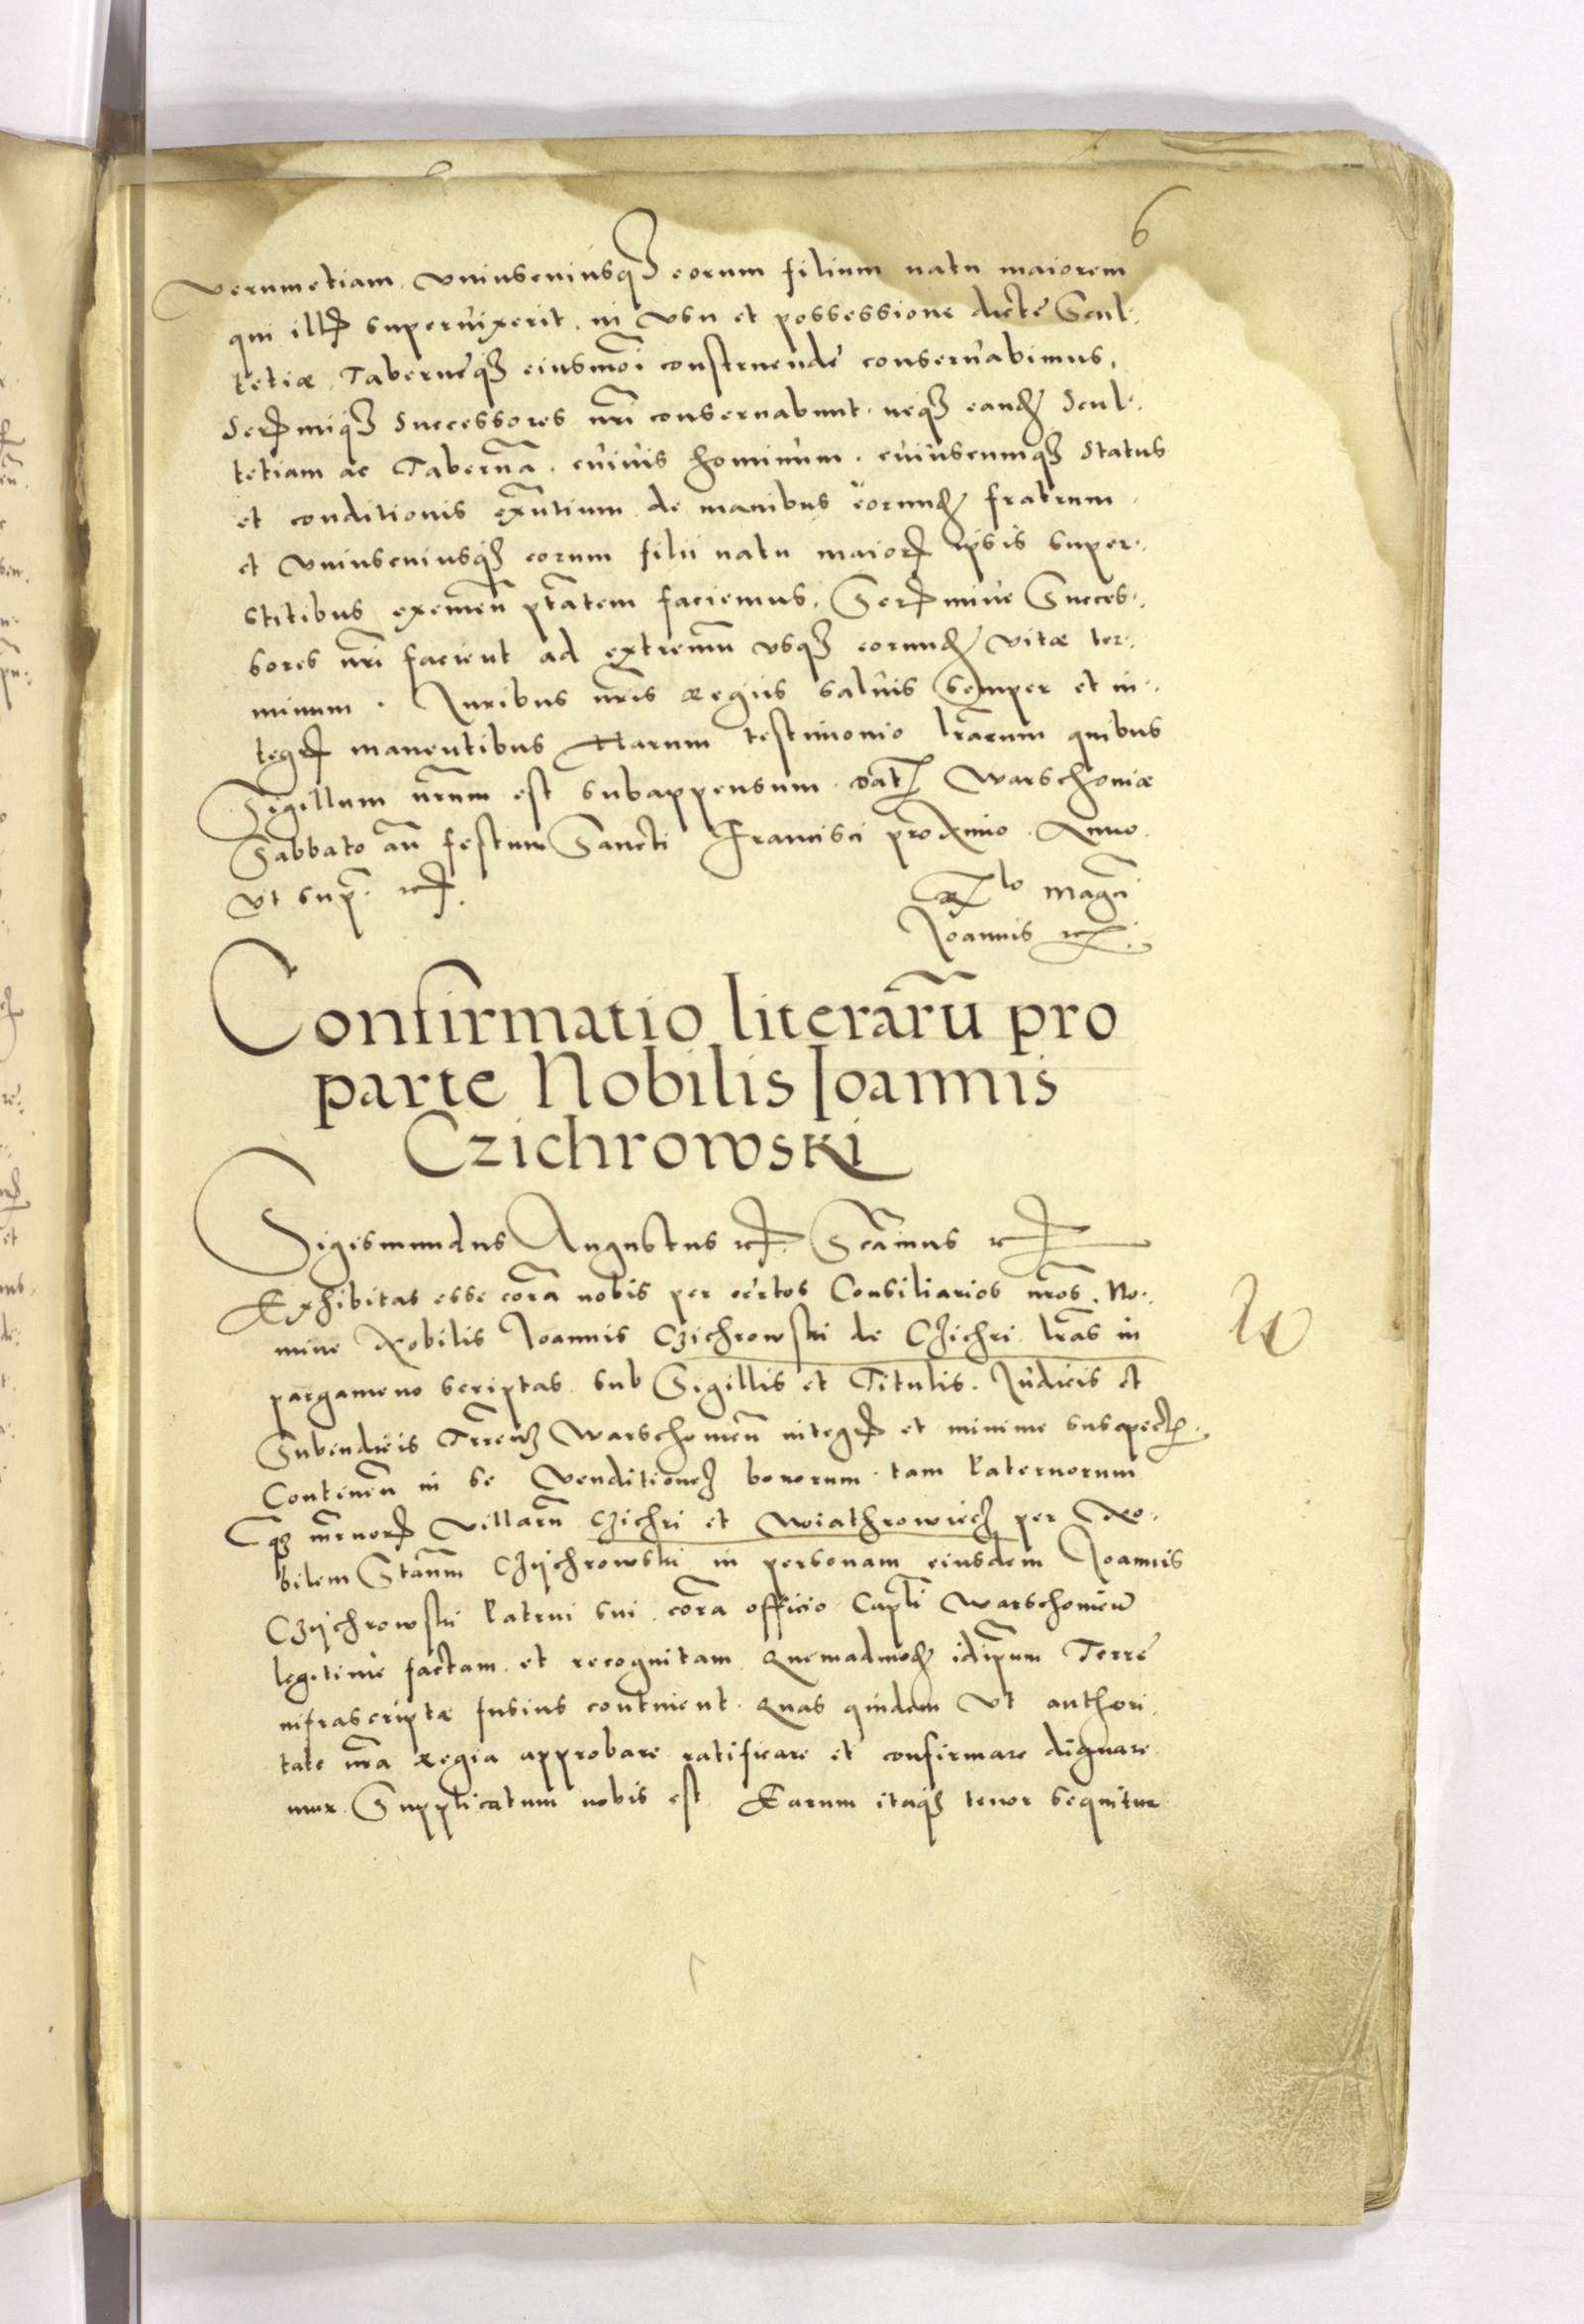 6
verumetiam uniuscuiusq3 eorum filium natu maiorem
qui illis supervixerit, in usu et possessione dictę Scul-
tetiæ Tabernęq3 eiusmōi construendę conservabimus,
Sermiq3 Successores nri conservabunt, neq3 eand Scul-
tetiam ac Tabernā, cuivis hominum, cuiuscumq3 status
et conditionis exñtium de manibus eorund fratrum
et uniuscuiusq3 eorum filii natu maioris ipsis super-
stitibus eximeñ ptātem faciemus, Sermive Succes-
sores nri facient ad extremū usq3 eorund vitæ ter-
minum. Iuribus nris Regiis salvis semper et in-
tegris manentibus Harum testimonio lrarum quibus
Sigillum nrum est subappensum. Dat Warschoviæ
Sabbato añ festum Sancti Francisci proximo Anno
ut sup. etc. Rlo Magci
Joannis etc.
Confirmatio literarū pro
parte Nobilis Ioannis
Czichrowski
Sigismundus Augustus etc. Scāmus etc
Exhibitas esse corā nobis per certos Consiliarios nros, No-
mine Nobilis Joannis Czichrowski de Czichri lras in
pargameno scriptas sub Sigillis et Titulis. Iudicis et
Subiudicis Trren Warschovieñ integris et minime suspect.
Contineñ in se Venditione bonorum tam Paternorum
q3 mrnor villarū Czichri et Wiathrowiecz per No-
bilem Stanm Czijchrowski in personam eiusdem Joannis
Czijchrowski Patrui sui corā officio Captli Warschovieñ
legitime factam et recognitam Quemadmod idipsum Terrę
infrascriptæ fusius continent. Quas quidem Ut authori-
tate nra Regia approbare ratificare et confirmare dignare
mur Supplicatum nobis est Earum itaq3 tenor sequitur